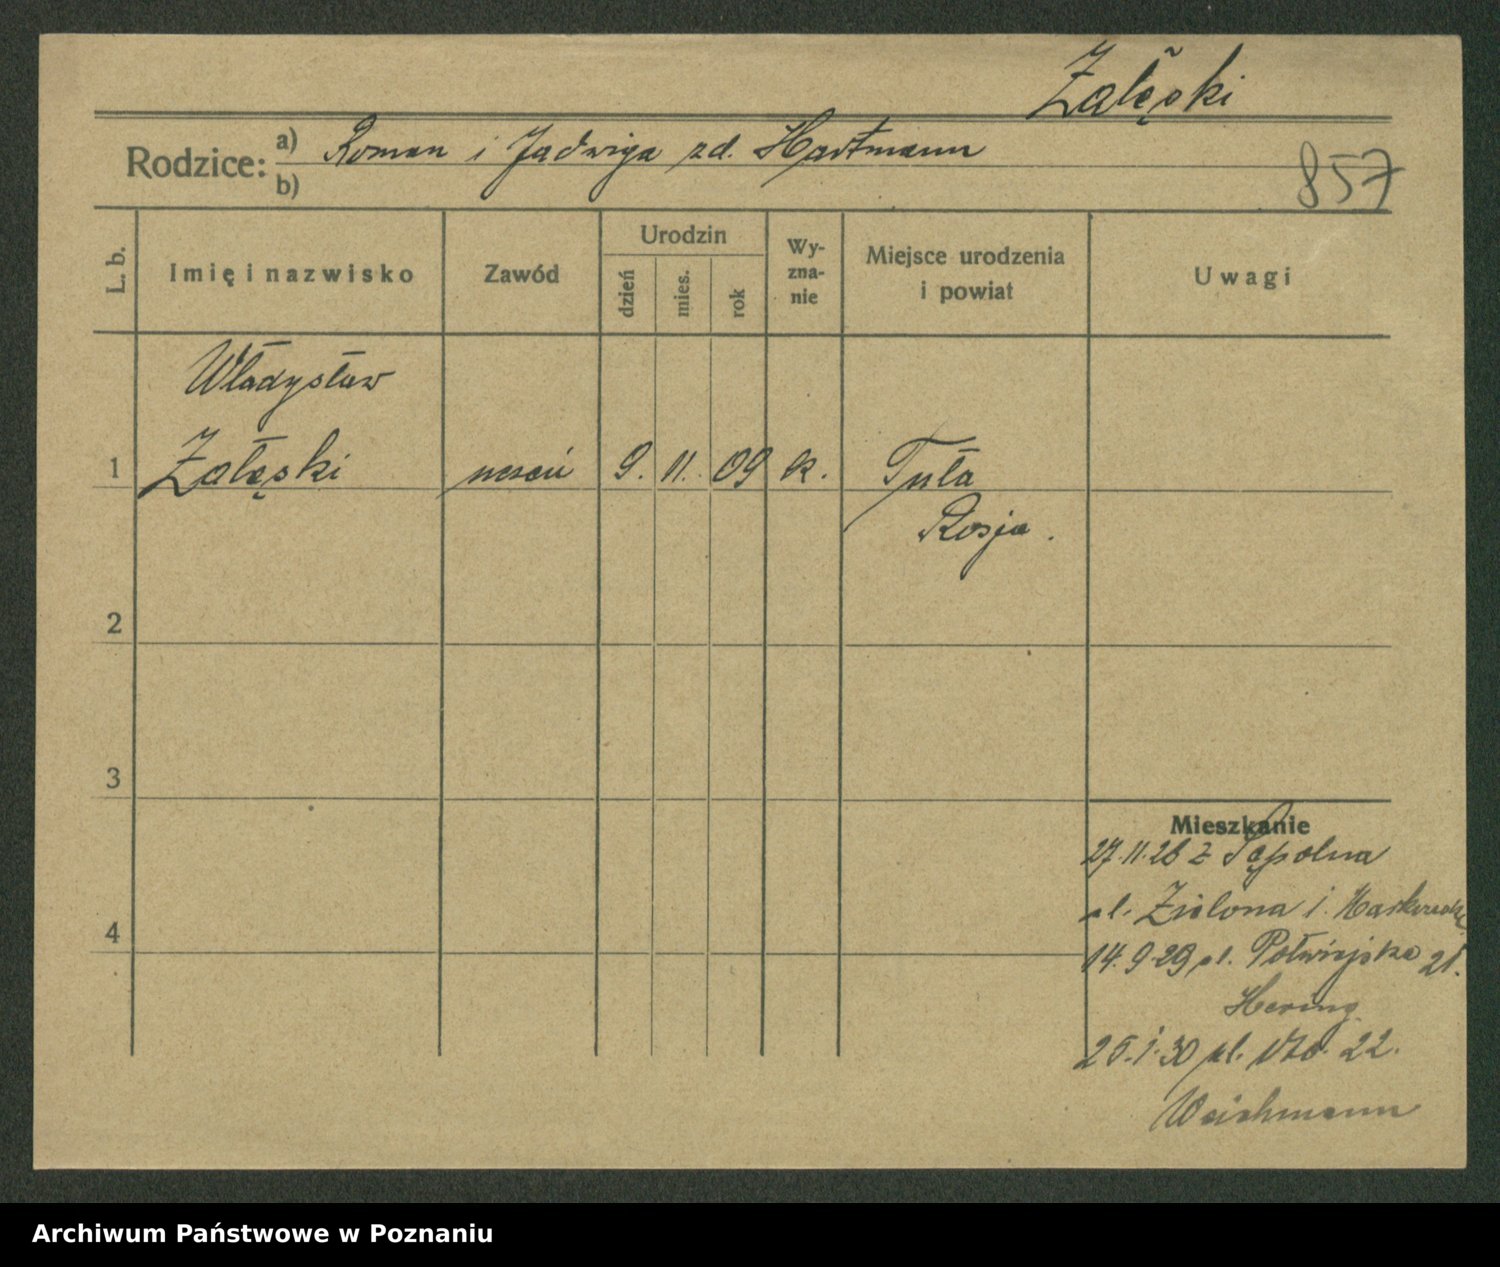 Załęski
Rodzice: a) Roman i Jadwiga zd. Hartmann
b)
857
L. b.
Imię i nazwisko
Zawód
Urodzin
dzień
mies.
rok
Wy-
zna-
nie
Miejsce urodzenia
i powiat
Uwagi
Władysław
1 Załęski uczeń 9. 11. 09 k. Tuła
Rosja.
2
3
4
Mieszkanie
27.11.26 z Sępolna
ul. Zielona 1.
14.9.29 ul. Półwiejska 21.
Hering
25.1.30 pl. 22.
Weichmann
Archiwum Państwowe w Poznaniu